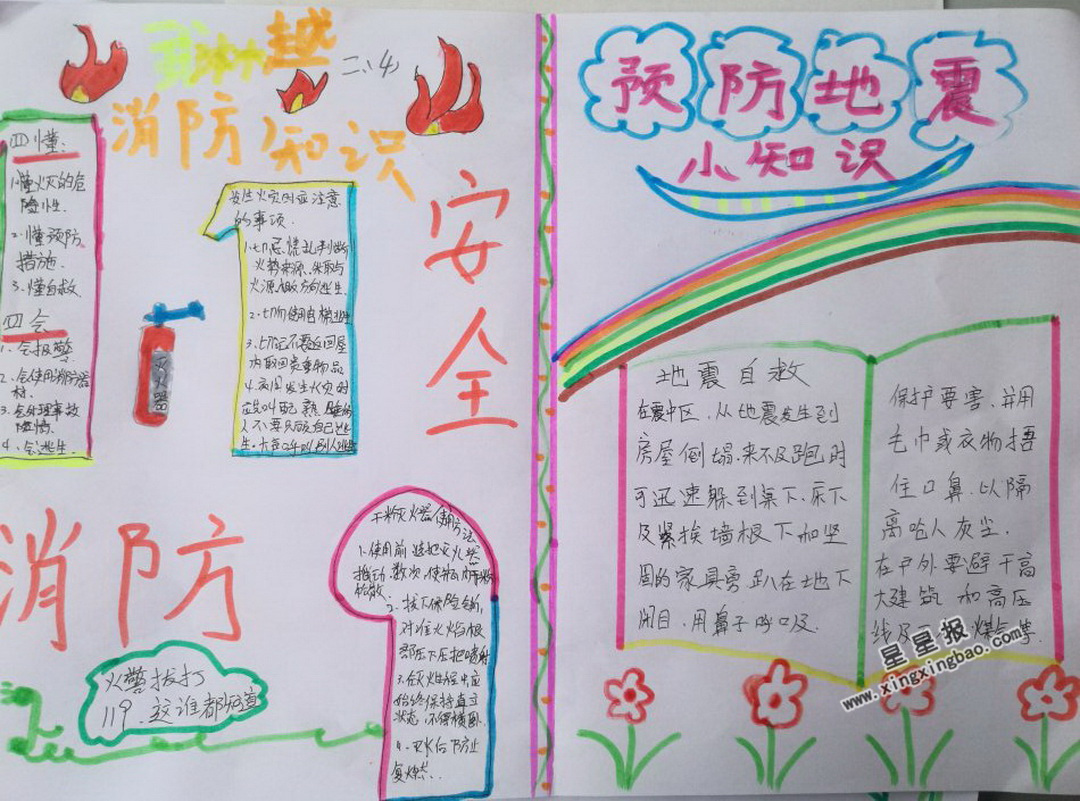 越
二、4
消防知识
四懂:
1.懂火灾的危
险性.
2.懂预防
措施.
3.懂自救.
四会
1.会报警
2.会使用消防器
材.
3.会处理事故
险情.
4.会逃生
灭火器
发生火灾时应注意
的事项.
1.切忌慌乱,判断
火势来源,采取与
火源相反方向逃生.
2.切勿使用电梯逃生
3.切记不要返回屋
内取回贵重物品
4.夜间发生火灾时
应叫醒熟睡的
人不要只顾自己逃
生.
安全
消防
火警拔打
119.这谁都知道
干粉灭火器使用方法
1.使用前
数次,使瓶内干粉
松散.
2.拔下保险销,
对准火焰根
部压下压把喷射
3.在灭火过程中应
始终保持直立
状态,不得横卧.
4.灭火后防止
复燃.
预防地震
小知识
地震自救
在震中区,从地震发生到
房屋倒塌.来不及跑时
可迅速躲到桌下.床下
及紧挨墙根下和坚
固的家具旁趴在地下
闭目,用鼻子呼吸.
保护要害,并用
毛巾或衣物捂
住口鼻,以隔
离呛人灰尘.
在户外要避干高
大建筑 和高压
线及 煤气等.
星星报
www.xingxingbao.com